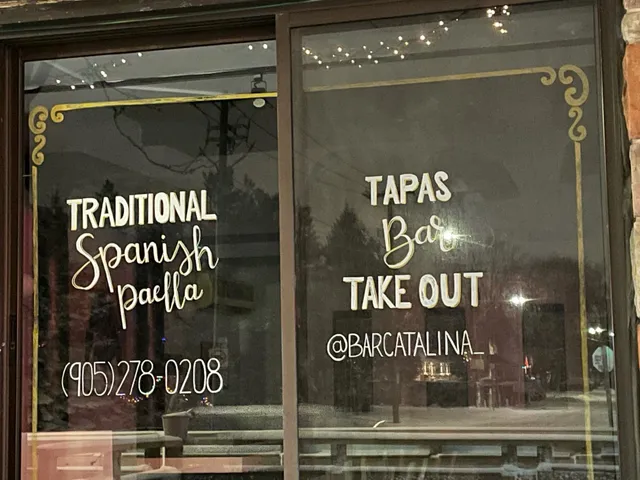 TRADITIONAL
Spanish
paella
(905)278-0208
TAPAS
Bar
TAKE OUT
@BARCATALINA_